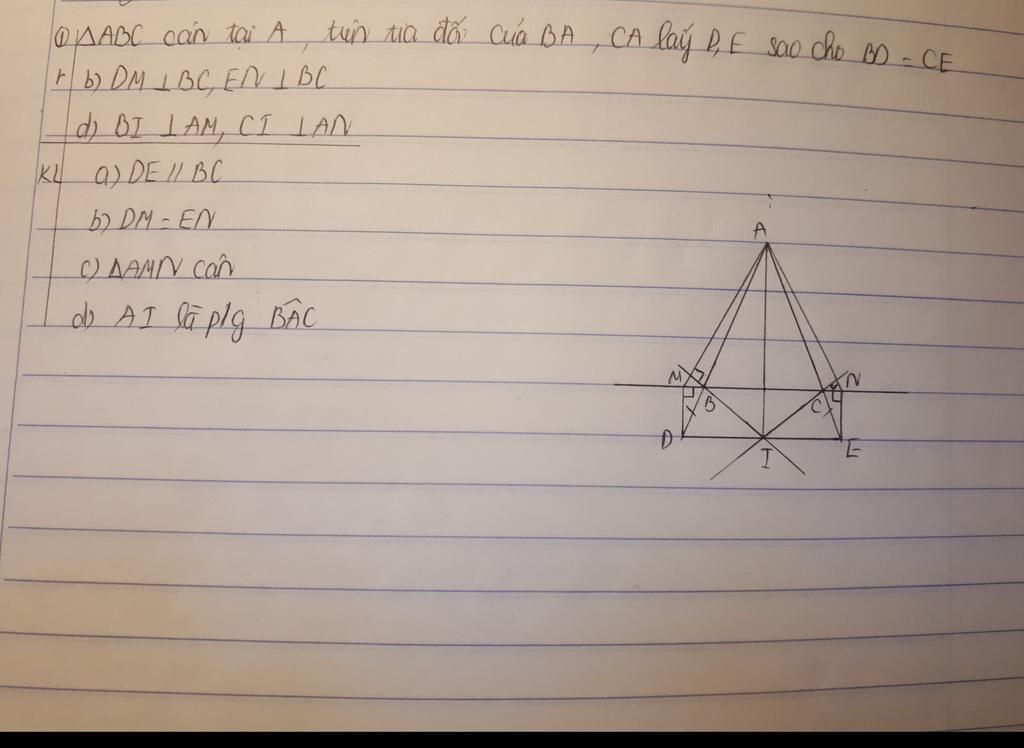 ① ΔABC cân tại A, trên tia đối của BA, CA lấy D, E sao cho BD = CE
b) DM ⊥ BC, EN ⊥ BC
d) BI ⊥ AM, CI ⊥ AN
KL a) DE // BC
b) DM = EN
c) ΔAMN cân
d) AI là p/g BÂC
A
M B C N
D I E